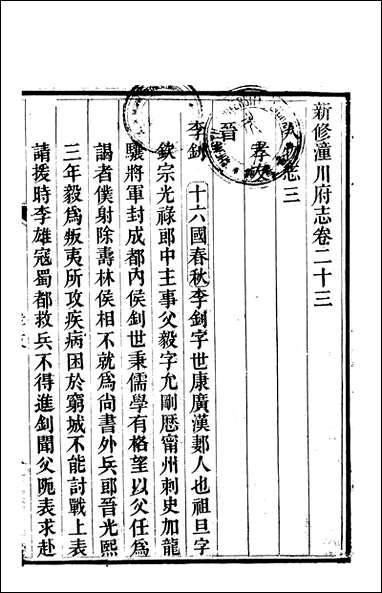 新修潼川府志卷二十三
人物志三
孝友
晉
李釗 十六國春秋李釗字世康廣漢郪人也祖旦字
欽宗光祿郎中主事父毅字允剛歷甯州刺史加龍
驤將軍封成都內侯釗世秉儒學有格望以父任爲
謁者僕射除壽林侯相不就爲尚書外兵郎晉光熙
三年毅爲叛夷所攻疾病困於窮城不能討戰上表
請援時李雄寇蜀都救兵不得進釗聞父阨表求赴